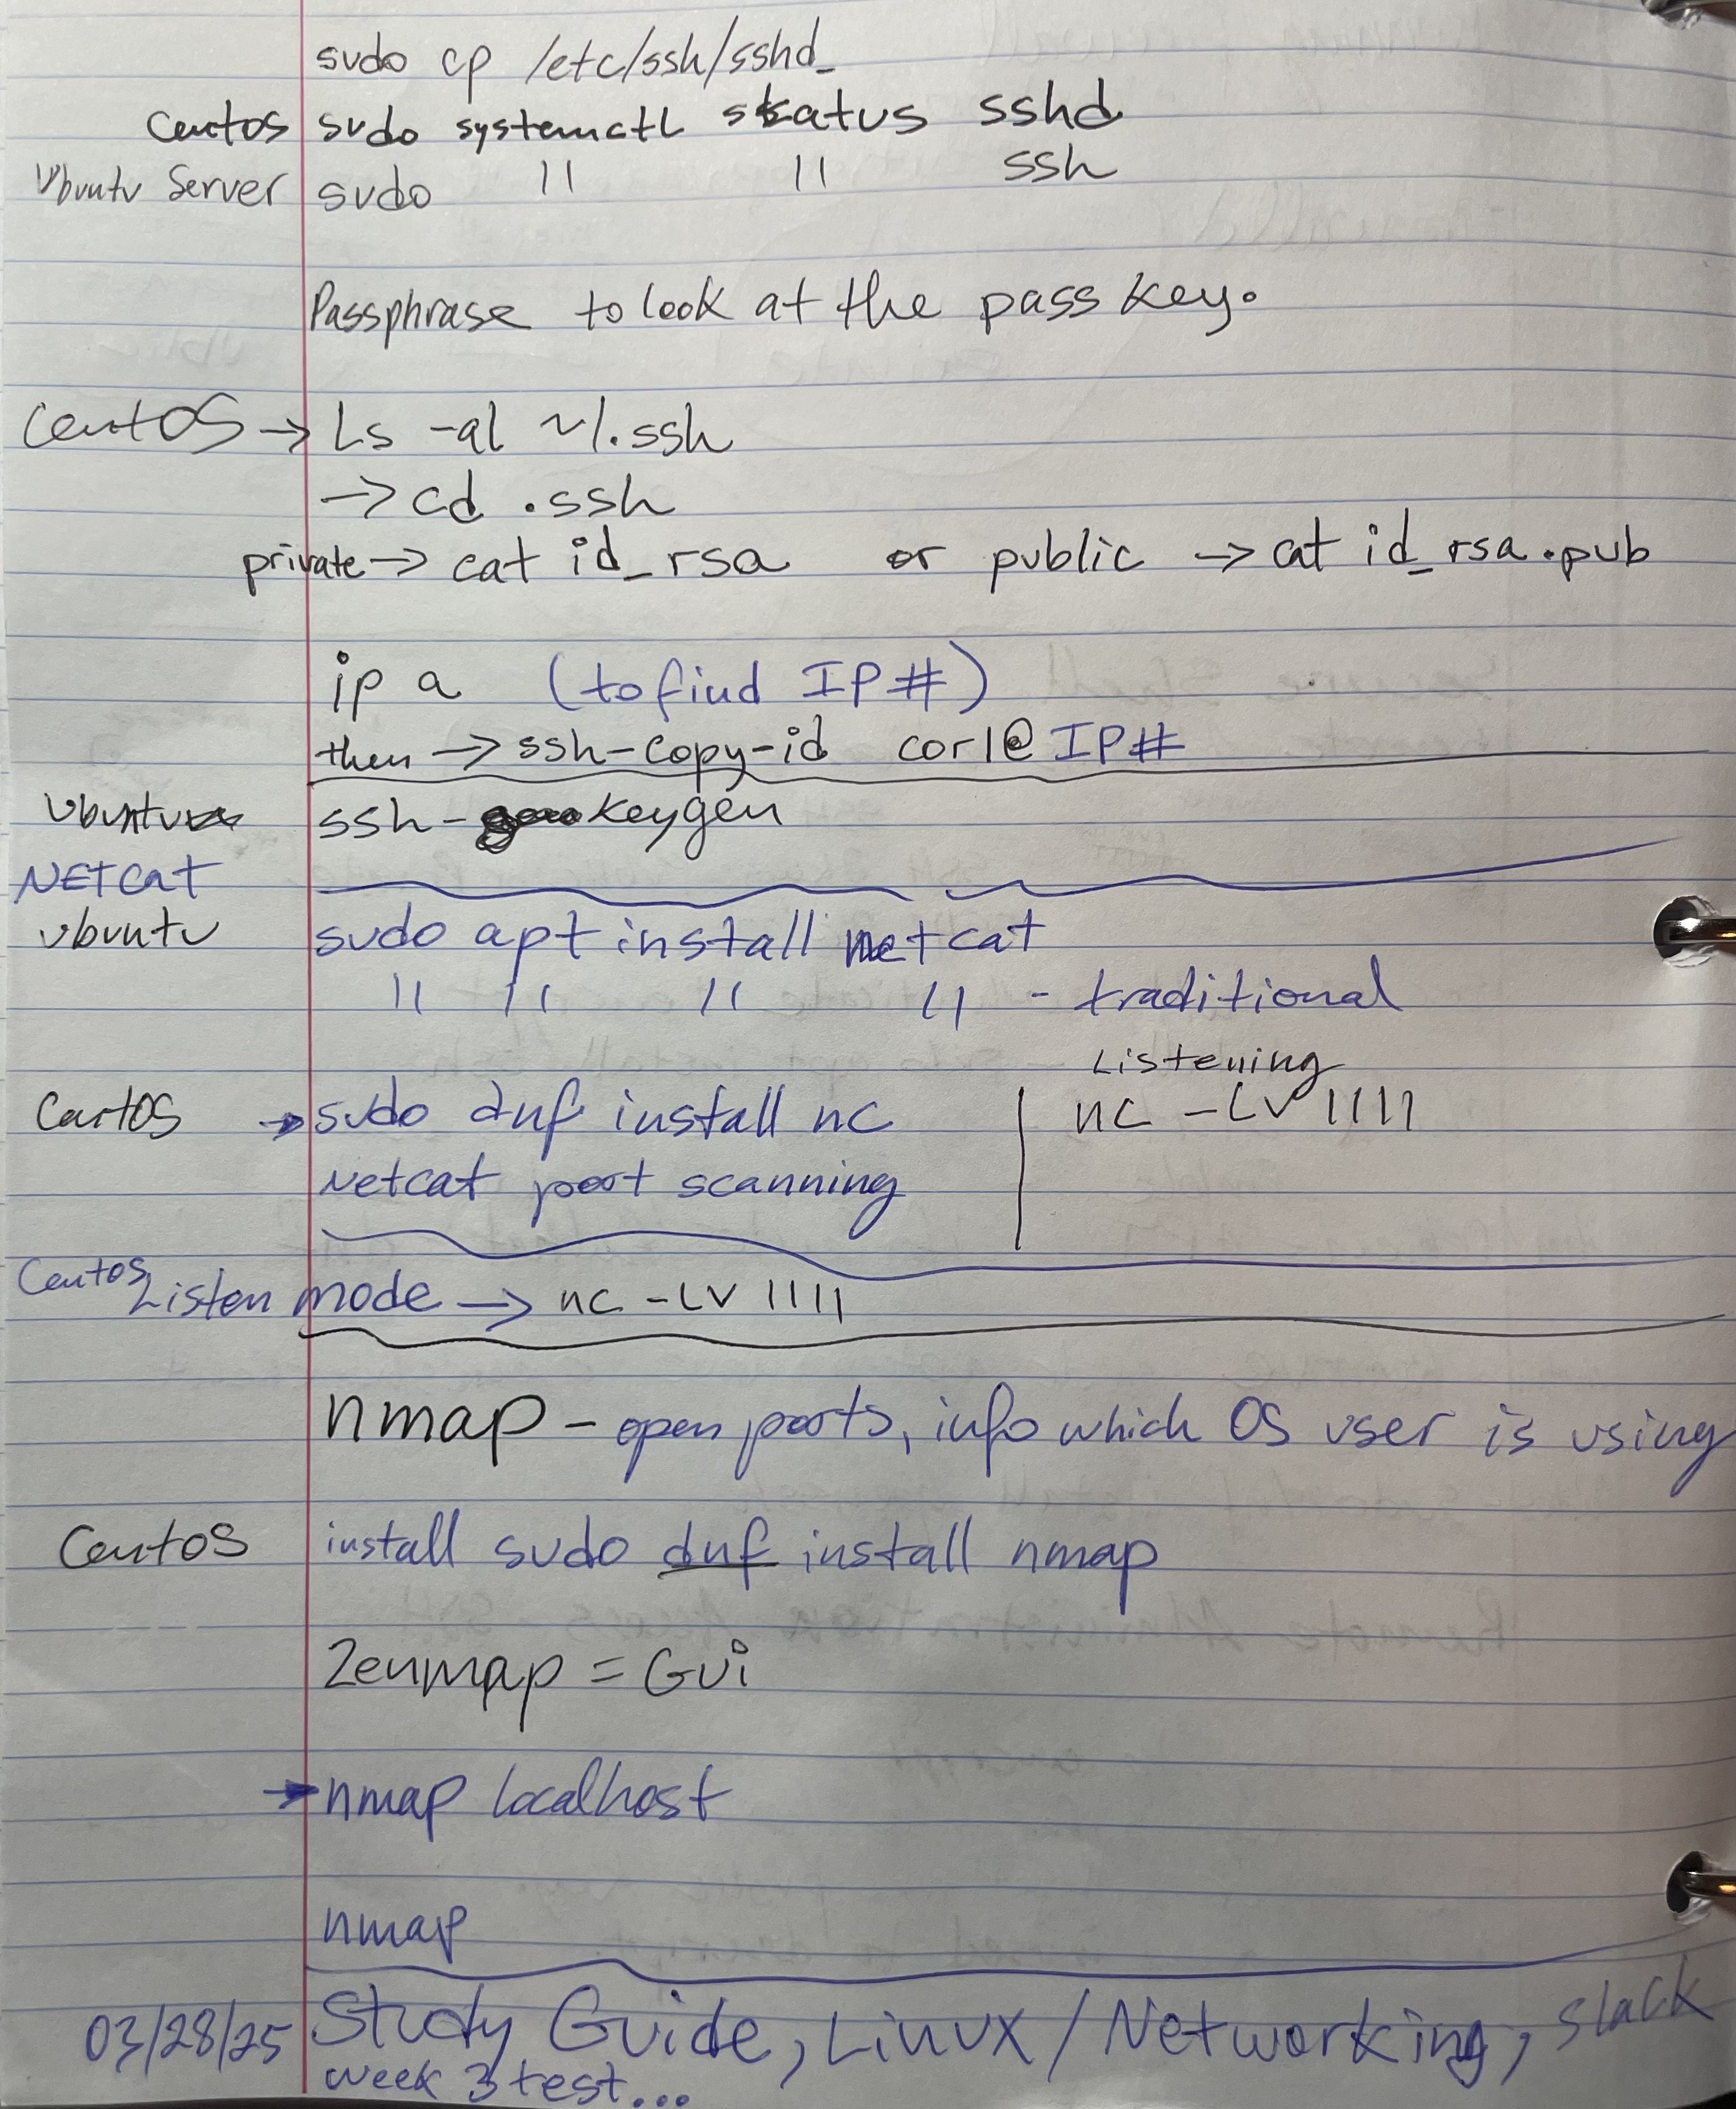 sudo cp /etc/ssh/sshd_
Centos sudo systemctl status sshd
Ubuntu Server sudo " " ssh
Passphrase to look at the pass key.
CentOS → Ls -al ~/.ssh
→ cd .ssh
private → cat id_rsa or public → cat id_rsa.pub
ip a (to find IP#)
then → ssh-copy-id corl@IP#
Ubuntu ssh-keygen
NETCat
ubuntu sudo apt install netcat
" " " " - traditional
Listening
CentOS → sudo dnf install nc | nc -LV 1111
Netcat port scanning
Centos Listen mode → nc -LV 1111
nmap - open ports, info which OS user is using
CentOS install sudo dnf install nmap
Zenmap = Gui
→ nmap localhost
nmap
03/28/25 Study Guide, Linux / Networking, slack
week 3 test...